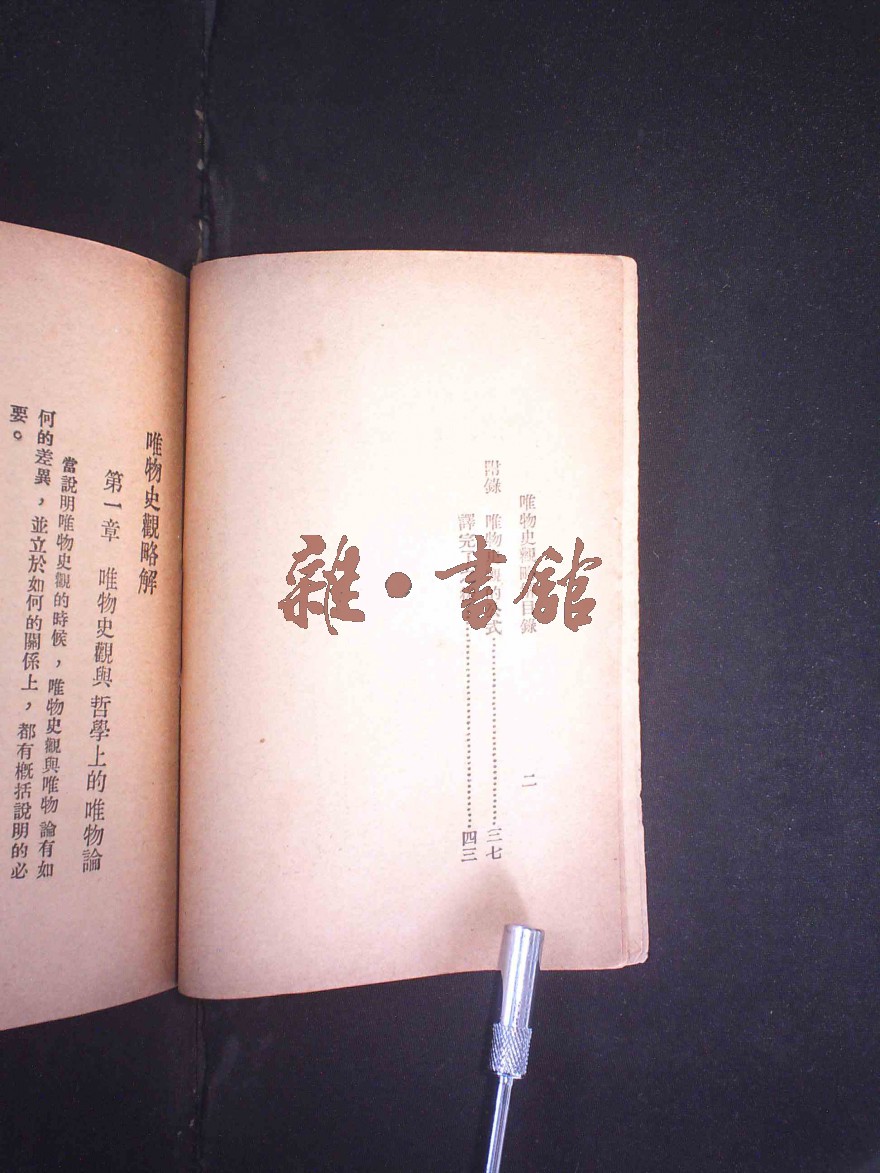 唯物史觀略解目錄
二
附錄 唯物史觀的公式……三七
譯完了……四三
雜·書館
唯物史觀略解
第一章 唯物史觀與哲學上的唯物論
當說明唯物史觀的時候,唯物史觀與唯物論有如
何的差異,並立於如何的關係上,都有概括說明的必
要。